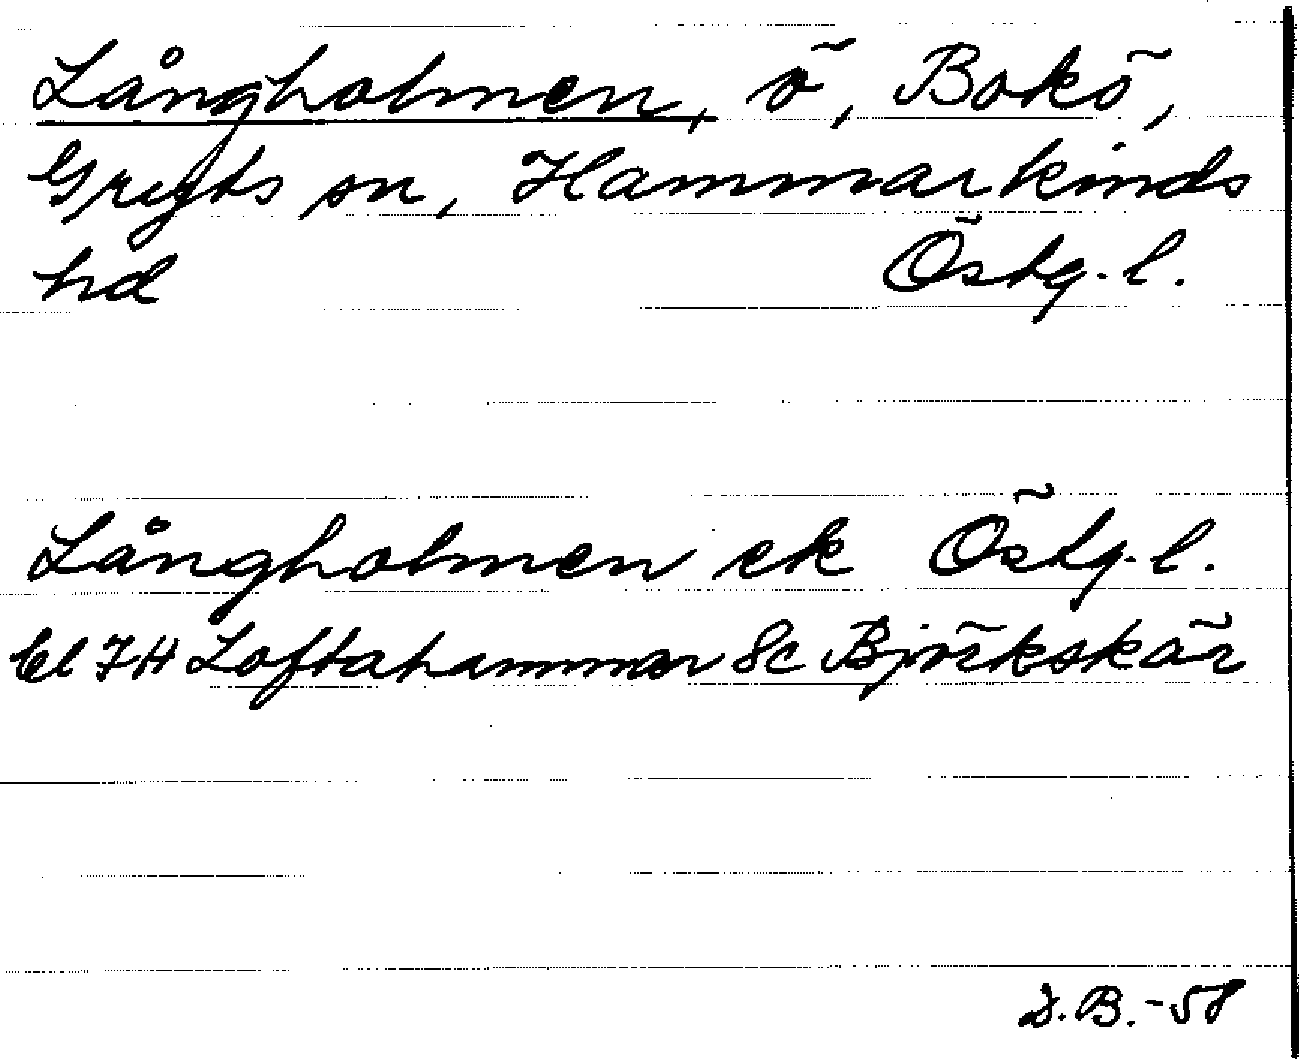 Långholmen, ö, Bokö,
Gryts sn, Hammarkinds
hd Östg.l.
Långholmen ek Östg.l.
El 7H Loftahammar 8c Björkskär
D.B.-58